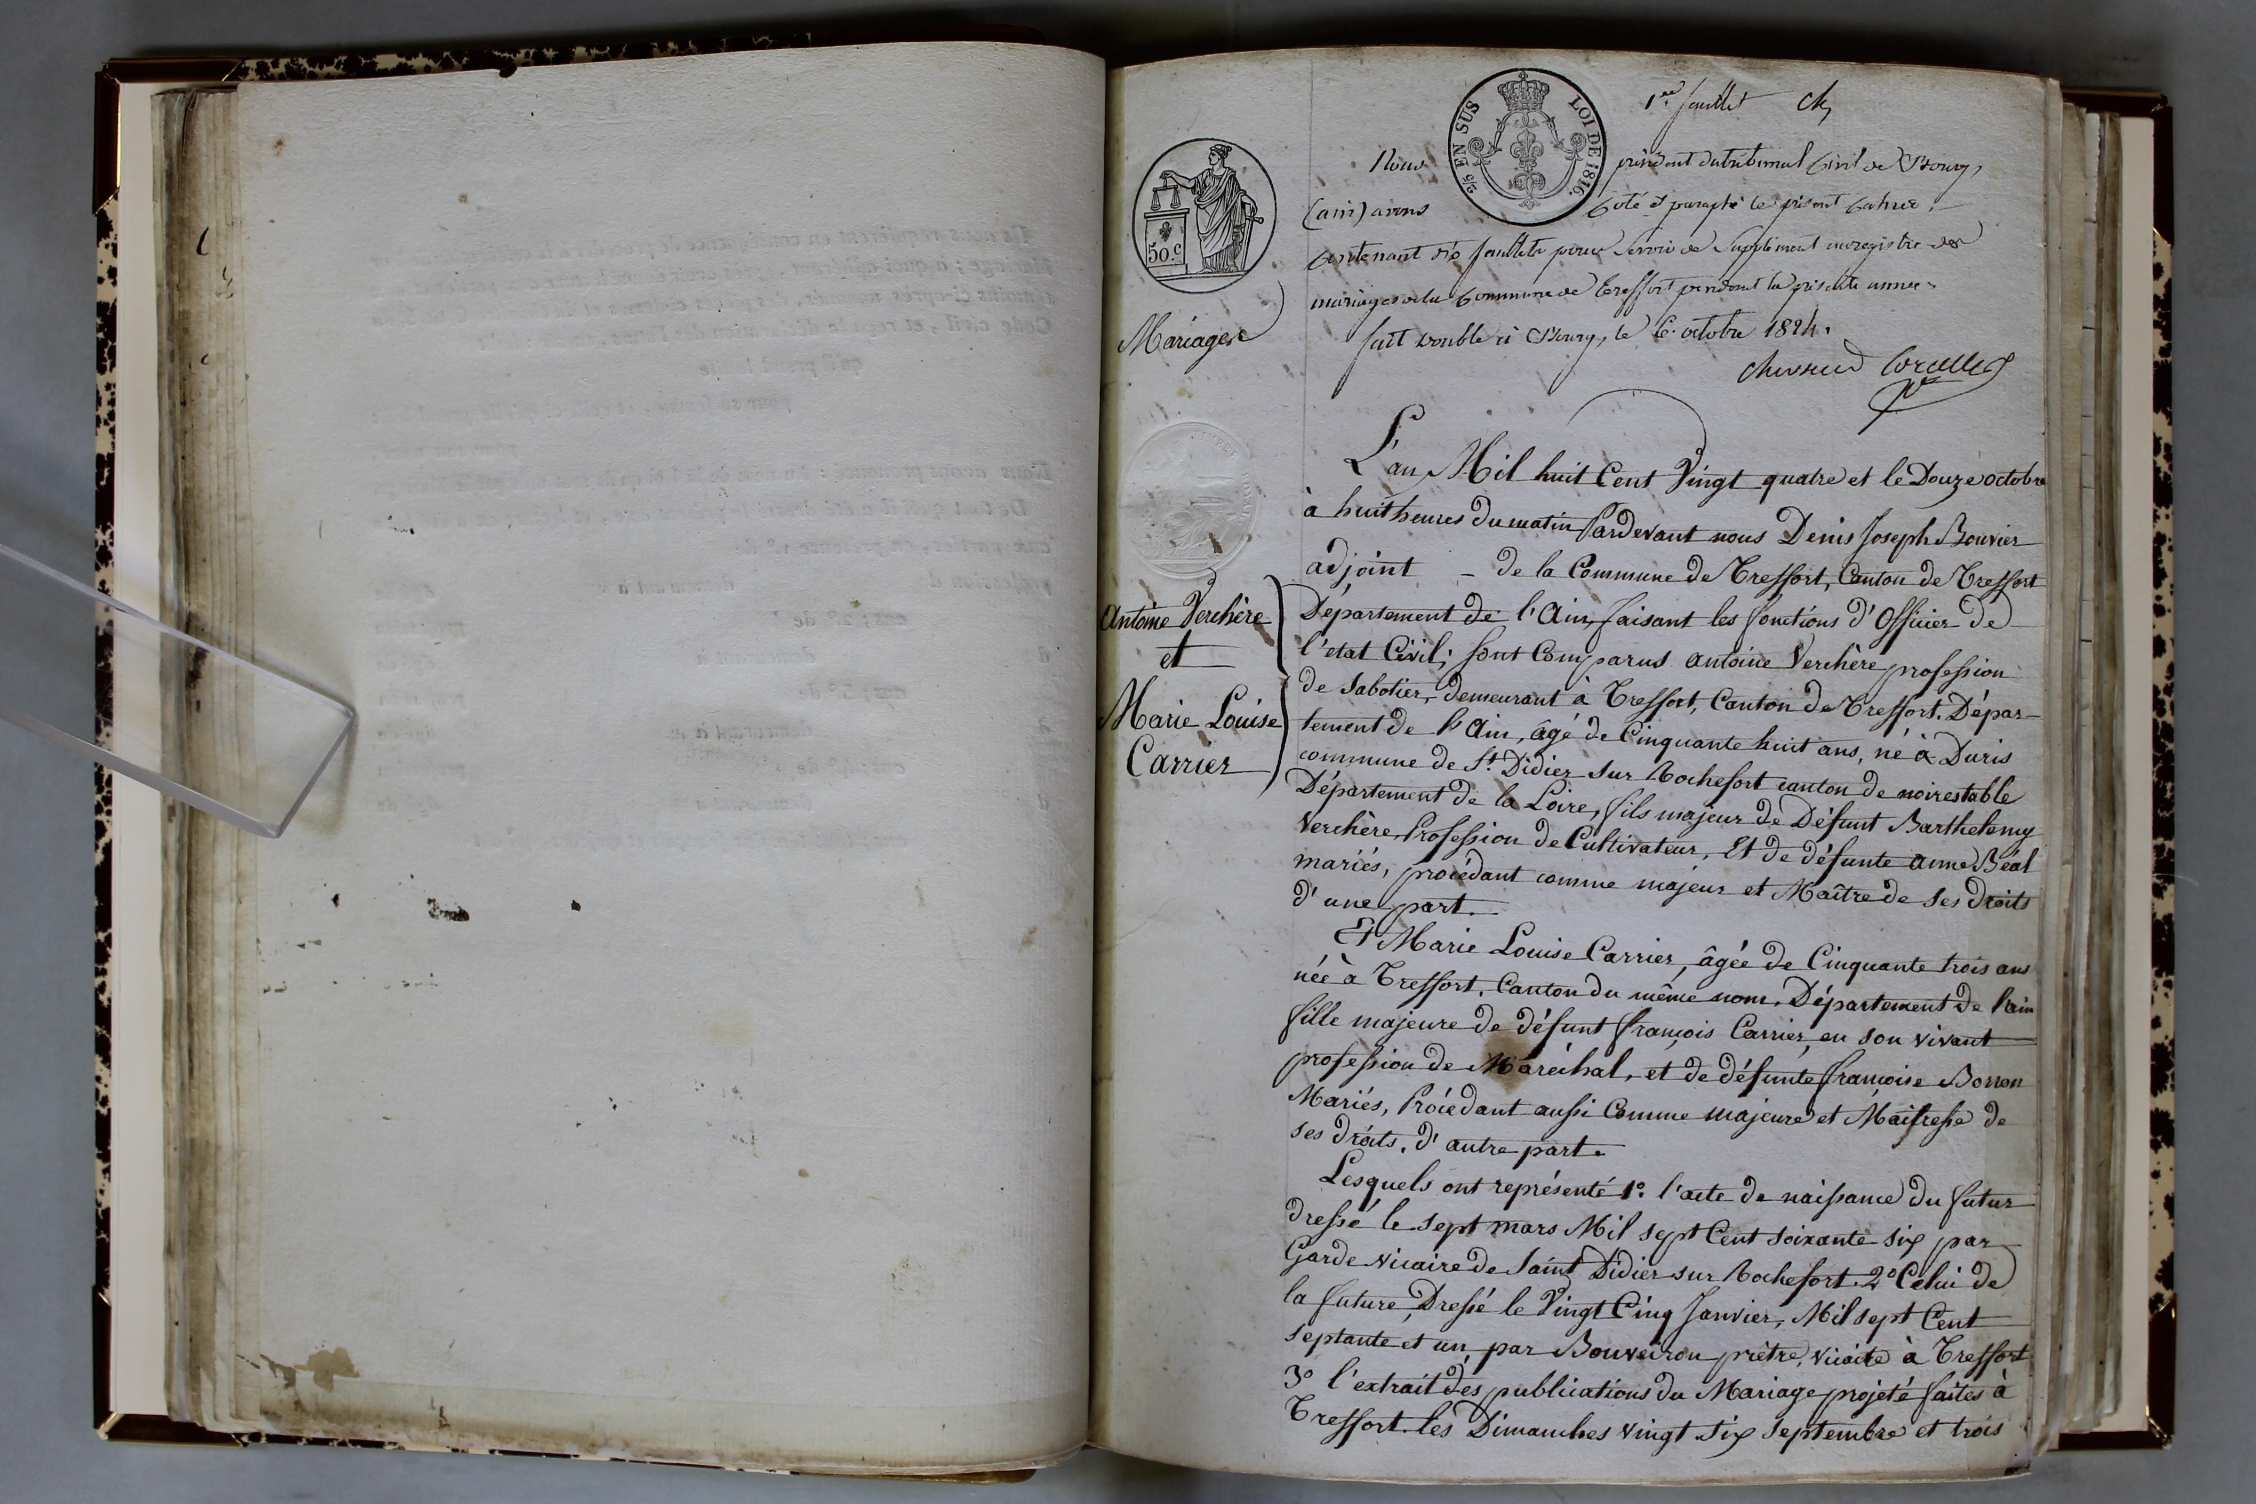 1er feuillet
2/5 EN SUS
LOI DE 1816.
50.c
Nous président du tribunal Civil de Bourg,
(ain) avons Coté et paraphé le présent Cahier
Contenant six feuillets pour servir de Supplément au registre des
mariages de la Commune de Treffort pendant la présente année
fait double à Bourg, le 6 octobre 1824.
Mariages
L'an Mil huit Cent Vingt quatre et le Douze octobre
à huit heures du matin Pardevant nous Denis Joseph Bouvier
adjoint – de la Commune de Treffort, Canton de Treffort
Département de l'Ain, faisant les fonctions d'Officier de
l'etat Civil; sont Comparus antoine Verchère profession
de Sabotier, demeurant à Treffort, Canton de Treffort. Dépar-
tement de l'Ain, âgé de Cinquante huit ans, né à Duris
commune de St. Didier sur Rochefort canton de noirestable
Département de la Loire, fils majeur de Défunt Barthelemy
Verchère, Profession de Cultivateur, Et de défunte anne Béal
mariés, procédant comme majeur et Maître de ses droits
d'une part.
Antoine Verchère
et
Marie Louise
Carrier
Et Marie Louise Carrier, âgée de Cinquante trois ans
née à Treffort, Canton du même nom. Département de l'ain
fille majeure de défunt françois Carrier, en son vivant
profession de Maréchal, et de défunte françoise Borron
Mariés, Procédant aussi Comme majeure et Maitresse de
ses droits, d'autre part.
Lesquels ont représenté 1º. l'acte de naissance du futur
dressé le sept mars Mil sept Cent soixante six par
Garde vicaire de Saint Didier sur Rochefort. 2º Celui de
la future, Dressé le Vingt Cinq Janvier, Mil sept Cent
septante et un, par Bouveiron prêtre, vicaire à Treffort
3º l'extrait des publications du Mariage projeté faites à
Treffort les Dimanches vingt six septembre et trois